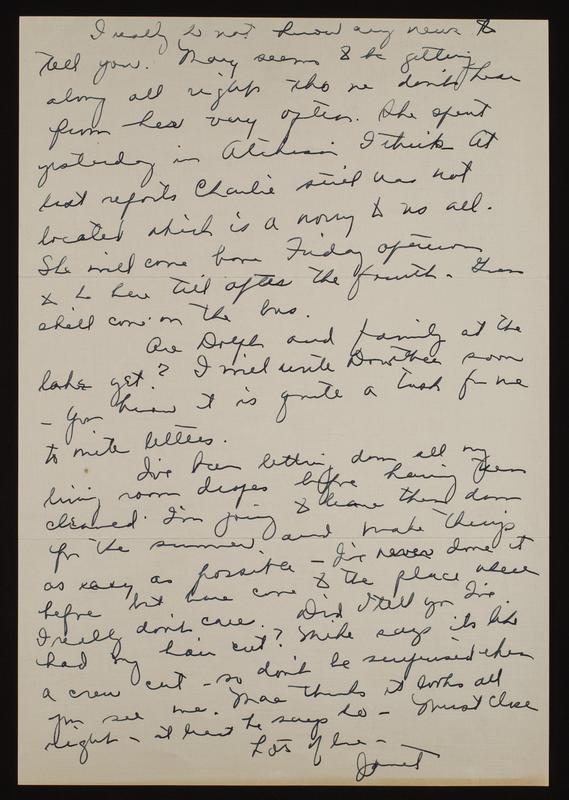 I really do not know any news to
tell you. Mary seems to be getting
along all right tho we don't hear
from her very often. She spent
yesterday in Atchison I think. At
last reports Charlie still was not
located which is a worry to us all.
She will come home Friday afternoon
to be here till after the fourth.
shall come on the bus.
Are Dolph and family at the
lake yet? I will write Dorothea soon
- you know it is quite a task for me
to write letters.
I've been letting down all my
living room drapes before having them
cleaned. I'm going to leave them down
for the summer, and make things
as easy as possible - I've never done it
before but have come to the place where
I really don't care. Did I tell you I've
had my hair cut? Mike says its like
a crew cut - so don't be surprised when
you see me. Mae thinks it looks all
right - at least he says so - Must close
Lots of love -
Janet